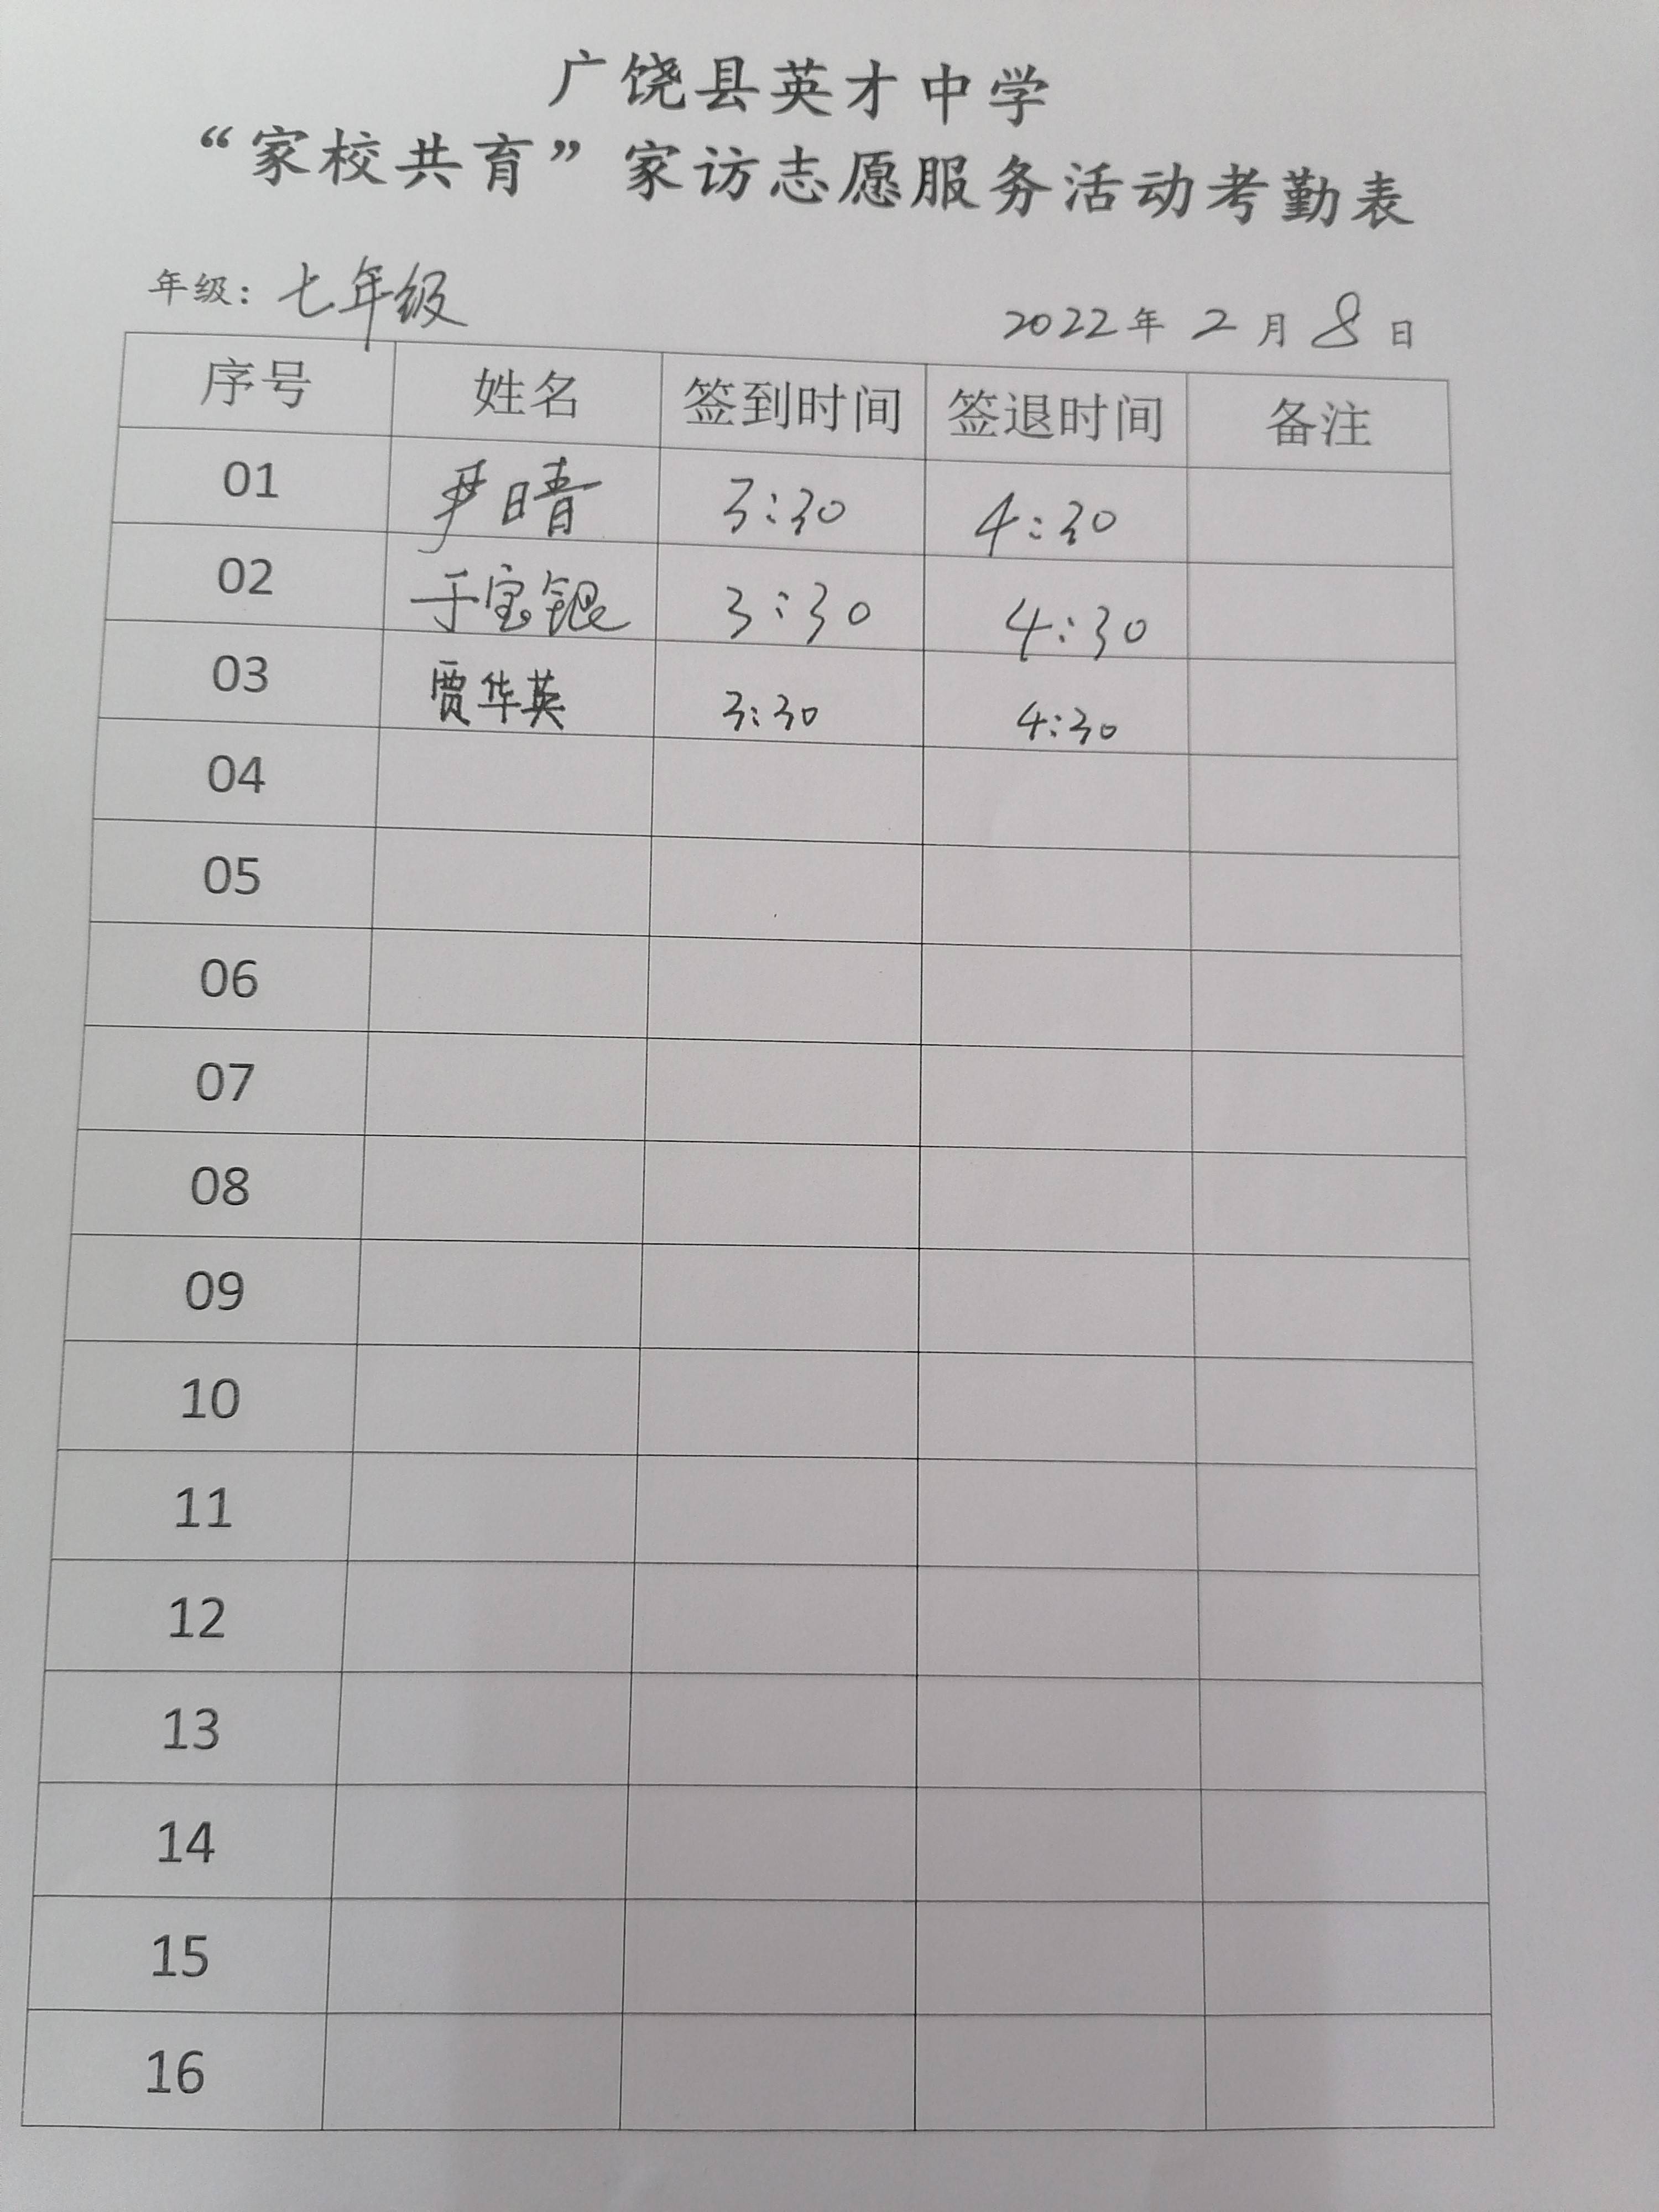 广饶县英才中学
“家校共育”家访志愿服务活动考勤表
年级：七年级 2022年 2 月 8 日
序号 姓名 签到时间 签退时间 备注
01 尹晴 3:30 4:30
02 于宝银 3:30 4:30
03 贾华英 3:30 4:30
04
05
06
07
08
09
10
11
12
13
14
15
16